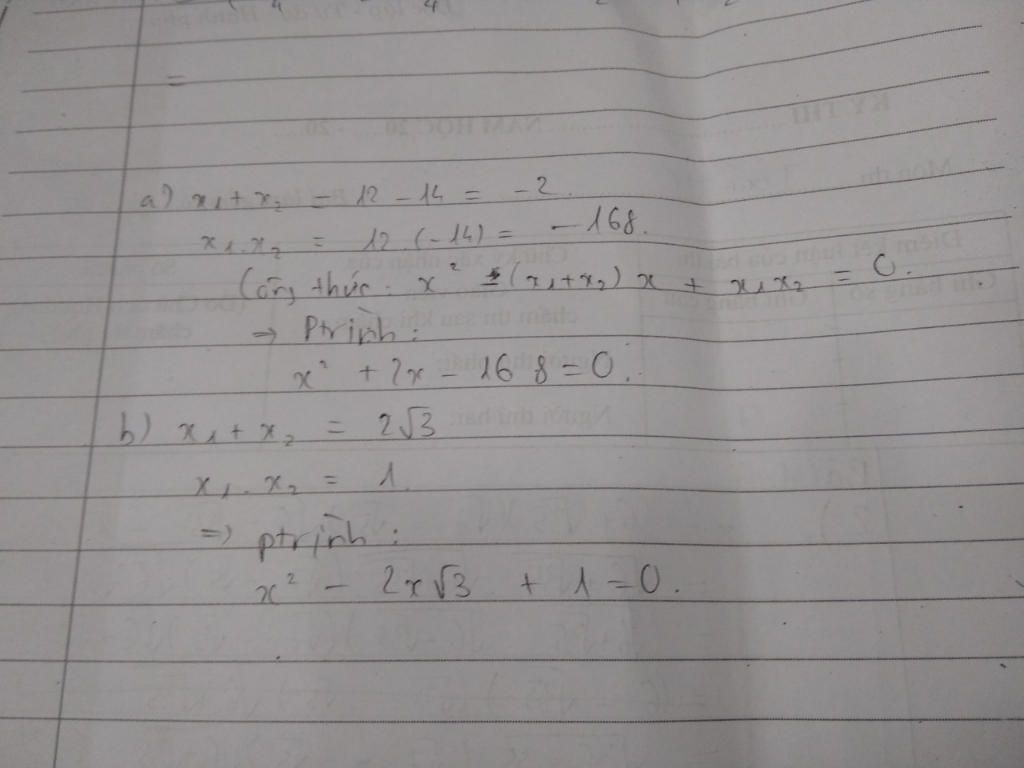 =
a) x₁ + x₂ = 12 - 14 = -2.
x₁.x₂ = 12.(-14) = -168.
Công thức: x² - (x₁+x₂) x + x₁x₂ = 0.
⇒ Ptrình:
x² + 2x - 168 = 0.
b) x₁ + x₂ = 2√3
x₁.x₂ = 1.
⇒ ptrình:
x² - 2x√3 + 1 = 0.